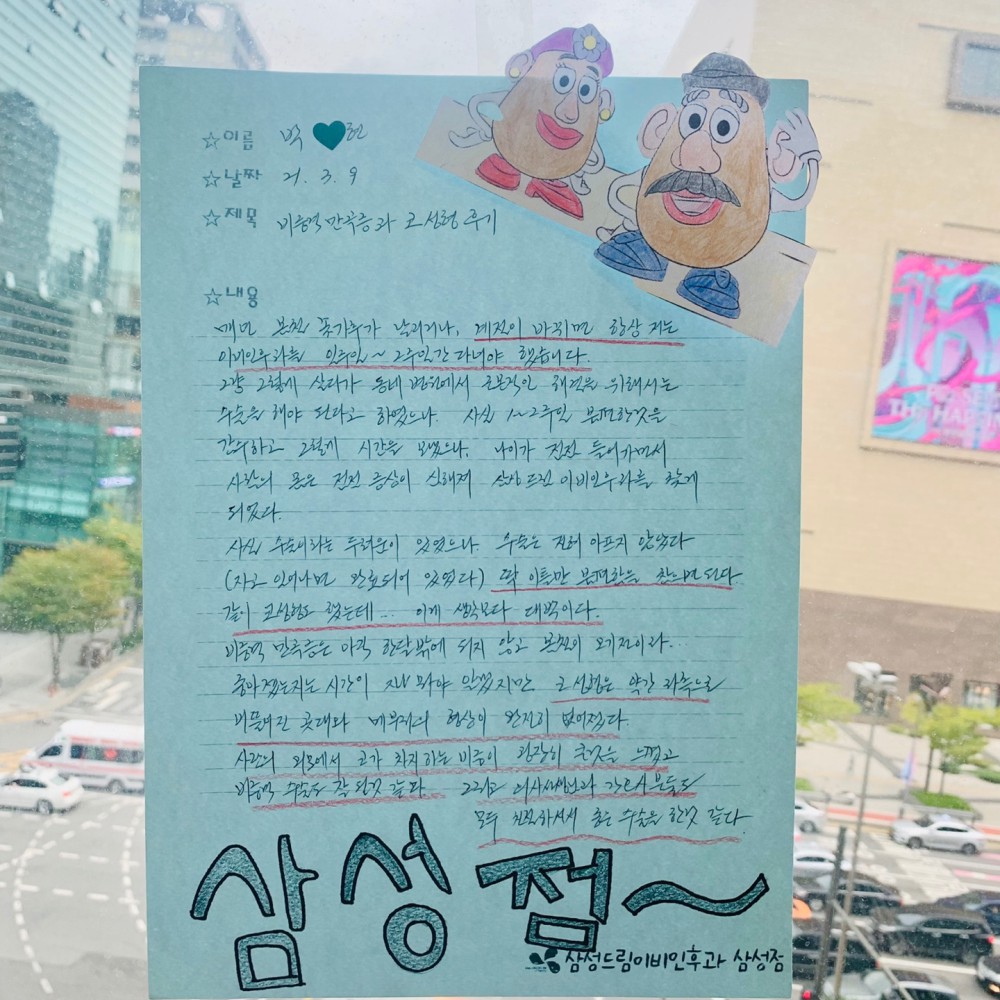 ☆이름 박 ♥현
☆날짜 21. 3. 9
☆제목 비중격 만곡증과 코성형 후기
☆내용
매년 봄철 꽃가루가 날리거나, 계절이 바뀌면 항상 저는
이비인후과를 일주일~2주일간 다녀야 했습니다.
그냥 그렇게 살다가 동네 병원에서 근본적인 해결을 위해서는
수술을 해야 된다고 하였으나. 사실 1~2주일 불편한것을
감수하고 그렇게 시간을 보냈으나. 나이가 점점 들어가면서
사람의 몸은 점점 증상이 심해져 삼성드림이비인후과를 찾게
되었다.
사실 수술이라는 두려움이 있었으나. 수술은 전혀 아프지 않았다
(자고 일어나면 완료되어 있었다) 딱 이틀만 불편함을 참으면 된다
같이 코성형도 했는데... 이게 생각보다 대박이다.
비중격 만곡증은 아직 한달밖에 되지 않고 봄철이 오기전이라..
좋아졌는지는 시간이 지나 봐야 알겠지만 코성형은 약간 좌측으로
비뚤어진 콧대와 메부리코 형상이 완전히 없어졌다.
사람의 외모에서 코가 차지하는 비중이 굉장히 큰것을 느꼈고
비중격 수술도 잘 된것 같다. 그리고 의사선생님과 간호사분들도
모두 친절하셔서 좋은 수술을 한것 같다.
삼성점~
삼성드림이비인후과 삼성점